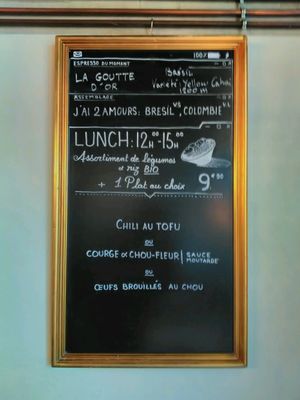 100%
ESPRESSO DU MOMENT
LA GOUTTE D'OR
BRÉSIL
Variété: Yellow Catuai
1200 m
ASSEMBLAGE
J'AI 2 AMOURS: BRESIL, COLOMBIE
LUNCH: 12H00-15H00
Assortiment de légumes
et riz BIO
+ 1 Plat au choix
9€90
CHILI AU TOFU
OU
COURGE & CHOU-FLEUR | SAUCE MOUTARDE
OU
ŒUFS BROUILLÉS AU CHOU